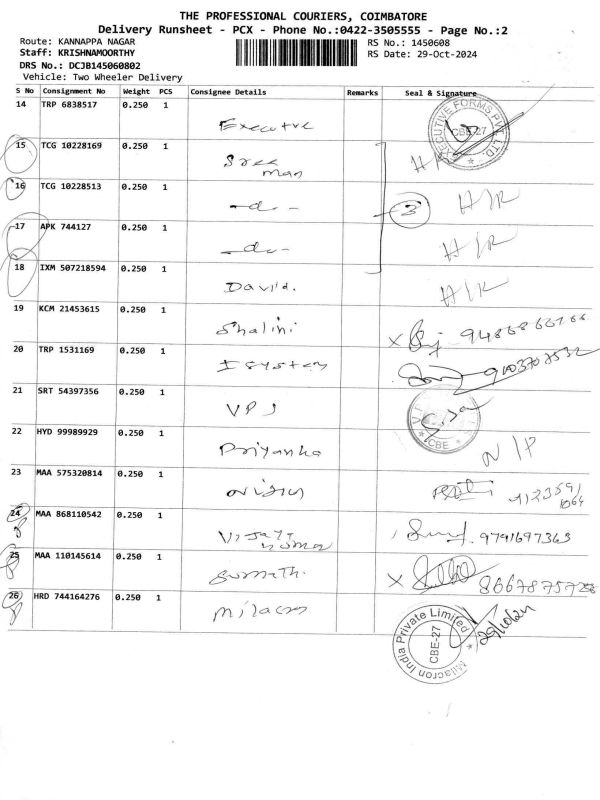 THE PROFESSIONAL COURIERS, COIMBATORE
Delivery Runsheet - PCX - Phone No.:0422-3505555 - Page No.:2
Route: KANNAPPA NAGAR
RS No.: 1450608
Staff: KRISHNAMOORTHY
RS Date: 29-Oct-2024
DRS No.: DCJB145060802
Vehicle: Two Wheeler Delivery
S No Consignment No Weight PCS Consignee Details Remarks Seal & Signature
14 TRP 6838517 0.250 1
Executve
EXECUTIVE FORMS PVT. LTD. CBE-27
15 TCG 10228169 0.250 1
Sree
man
16 TCG 10228513 0.250 1
-do- 3 H/R
17 APK 744127 0.250 1
-do- H/R
18 IXM 507218594 0.250 1
David. H/R
19 KCM 21453615 0.250 1
Shalini
20 TRP 1531169 0.250 1
I system
21 SRT 54397356 0.250 1
VPS
CBE
22 HYD 99989929 0.250 1
Priyanka N/P
23 MAA 575320814 0.250 1
24 MAA 868110542 0.250 1
9791697363
25 MAA 110145614 0.250 1
Sumathi
26 HRD 744164276 0.250 1
Milacron
Milacron India Private Limited CBE-27
29/10/24